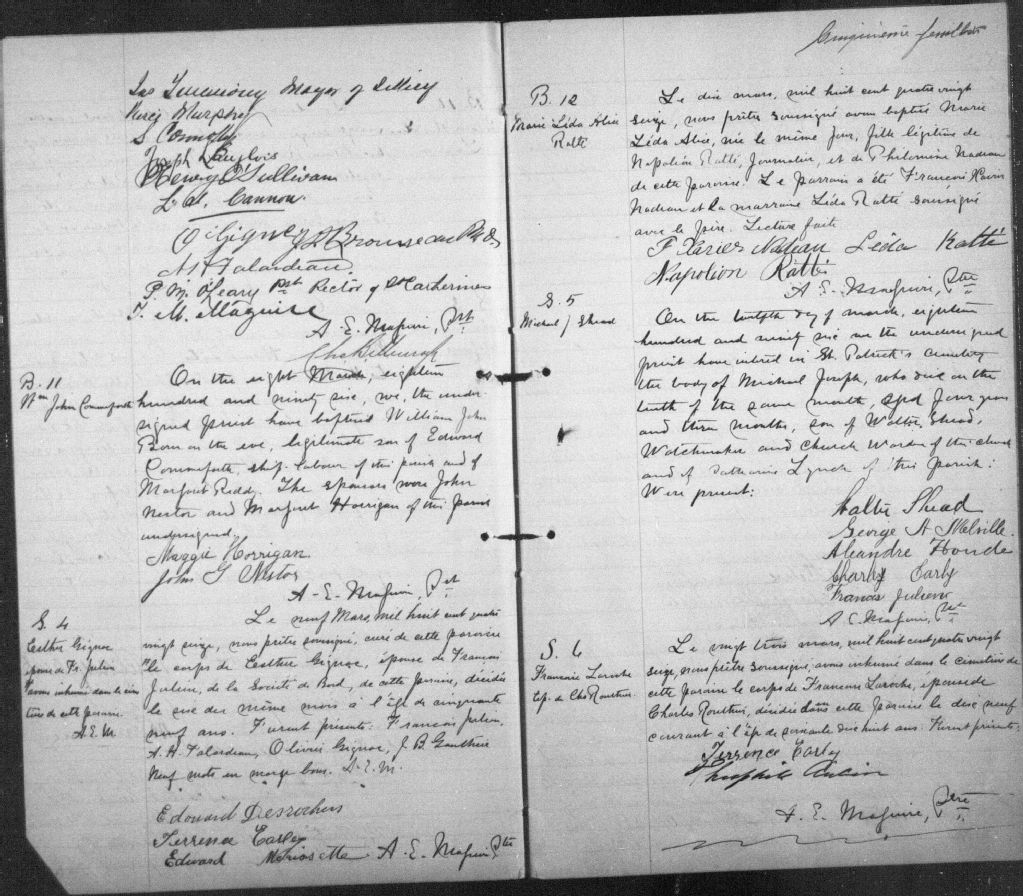 Jas Timmony Mayor of Sillery
Murphy
S Connolly
Joseph Langlois
Henry O'Sullivan
L. A. Cannon.
O Gignac J Brousseau
A H Falardeau
P. M. O'Leary Pst Rector of St Catherines
T. M. Maguire
A. E. Maguire, Pst
B. 11
Wm John Commeforth
On the eight March, eighteen
hundred and ninty six, we, the under-
signed priest have baptised William John
Born on the eve, legitimate son of Edward
Commeforth, ship-labour of this parish and of
Margaret Reddy. The sponsors were John
Nestor and Margaret Horrigan of this parish
undersigned.
Maggie Horrigan
John G Nestor
A. E. Maguire, Pst
S. 4
Esther Gignac
épouse de Fr. Julien
avons inhumé dans le cime
tière de cette paroisse.
A. E. M.
Le neuf Mars, mil huit cent quatre
vingt seize, nous prêtre soussigné, curé de cette paroisse
le corps de Esther Gignac, épouse de Francois
Julien, de la Société de Bord, de cette paroisse, décédée
le six du même mois à l'âge de cinquante
neuf ans. Furent présents: Francois Julien,
A. H. Falardeau, Olivier Gignac, J. B Gauthier
Neuf mots en marge bons. A. E. M.
Edouard Desrochers
Terrence Earley
Edward A. E. Maguire, Ptre
Cinquième feuillet
B. 12
Marie Léda Alice
Ratté
Le dix mars, mil huit cent quatre vingt
seize, nous prêtre soussigné avons baptisé Marie
Léda Alice, née le même jour, fille légitime de
Napoléon Ratté, Journalier, et de Philomène Nadeau
de cette paroisse. Le parrain a été Francois Xavier
Nadeau et la marraine Léda Ratté soussigné
avec le père. Lecture faite
F Xavier Nadeau Léda Ratté
Napoléon Ratté
A. E. Maguire, Ptre
S. 5
Michael J Shead
On the twelfth day of march, eighteen
hundred and ninty six we the undersigned
priest have intered in St. Patrick's cemetery
the body of Michael Joseph, who died on the
tenth of the same month, aged four years
and three months, son of Walter Shead,
Watchmaker and Church Warden of this church
and of Catharine Lynch of this parish:
Were present:
Walter Shead
George A Melville.
Aleandre Houde
Charly Early
Francis Julien
A. E. Maguire, Pst
S. 6
Francoise Laroche
Ep. de Chs Routhier
Le vingt trois mars, mil huit cent quatre vingt
seize nous prêtre soussigné, avons inhumé dans le cimetière de
cette paroisse le corps de Francoise Laroche, épouse de
Charles Routhier, décédée dans cette paroisse le dix neuf
courant à l'âge de soixante dix huit ans. Furent présents.
Terrence Earley
Théophile
A. E. Maguire, Ptre